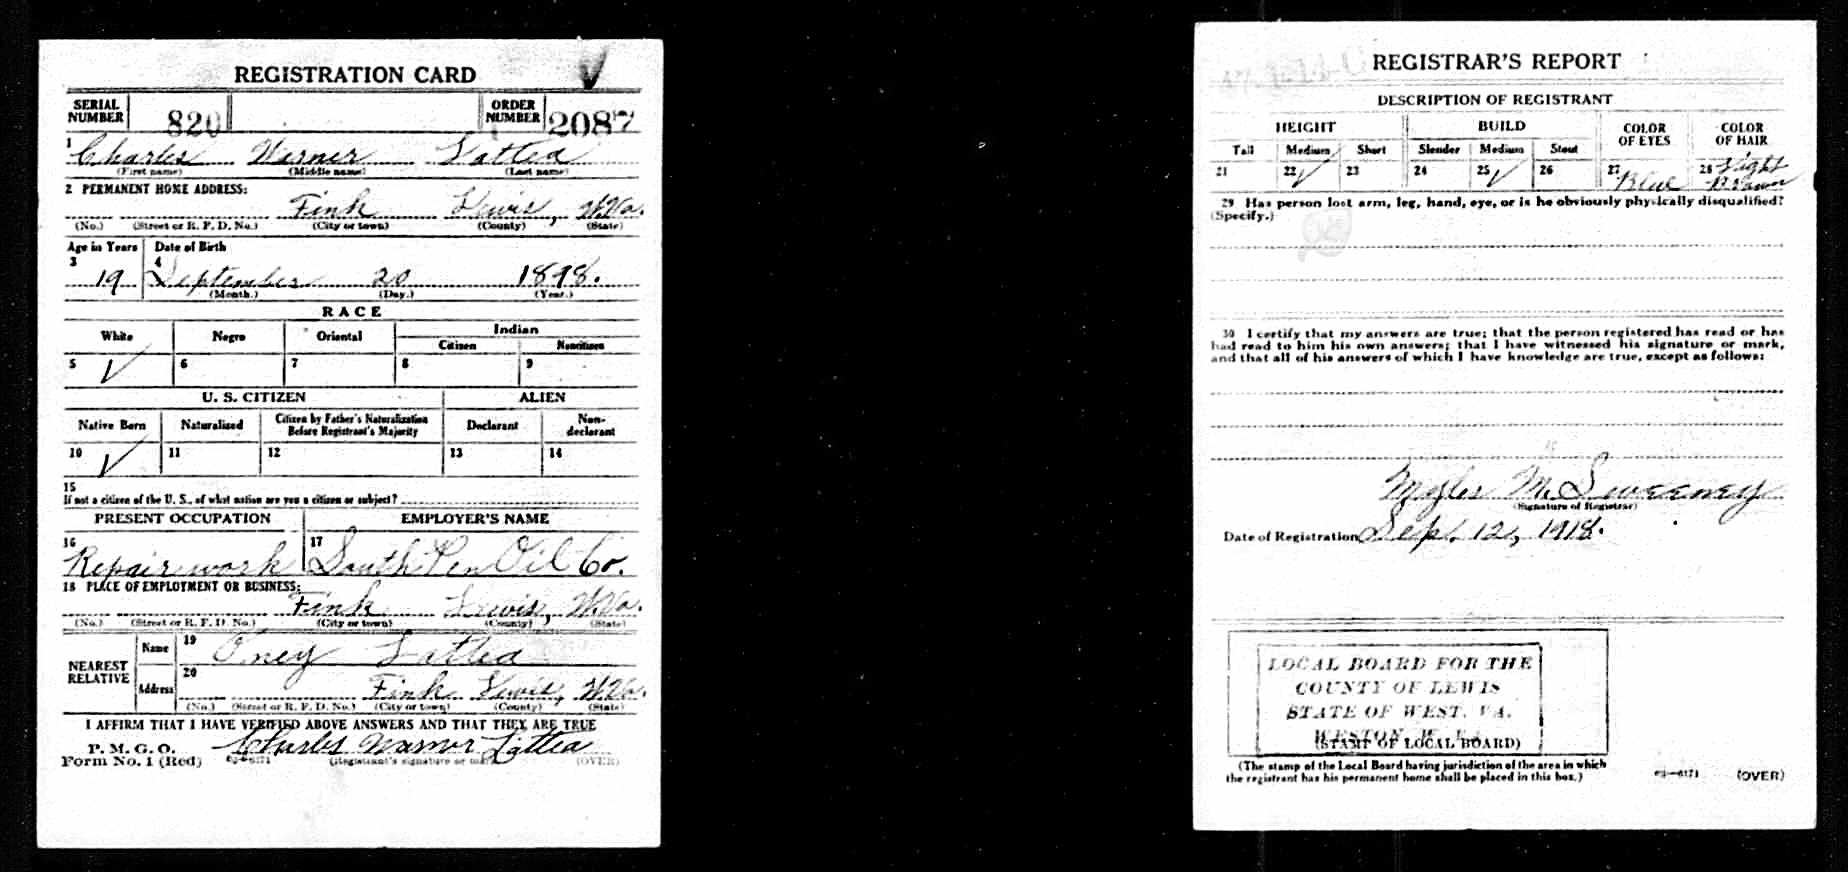 REGISTRATION CARD
SERIAL NUMBER 820 ORDER NUMBER 2087
1 Charles Warner Lattea
(First name) (Middle name) (Last name)
2 PERMANENT HOME ADDRESS:
Fink Lewis, W.Va.
(No.) (Street or R. F. D. No.) (City or town) (County) (State)
Age in Years Date of Birth
3 19 4 September 20 1898.
(Month.) (Day.) (Year.)
RACE
White Negro Oriental Indian
Citizen Noncitizen
5 ✓ 6 7 8 9
U. S. CITIZEN ALIEN
Native Born Naturalized Citizen by Father's Naturalization Before Registrant's Majority Declarant Non-declarant
10 ✓ 11 12 13 14
15
If not a citizen of the U. S., of what nation are you a citizen or subject?
PRESENT OCCUPATION EMPLOYER'S NAME
16 Repair work 17 South Pen Oil Co.
18 PLACE OF EMPLOYMENT OR BUSINESS:
Fink Lewis, W.Va.
(No.) (Street or R. F. D. No.) (City or town) (County) (State)
NEAREST RELATIVE Name 19 Oney Lattea
Address 20 Fink Lewis, W.Va.
(No.) (Street or R. F. D. No.) (City or town) (County) (State)
I AFFIRM THAT I HAVE VERIFIED ABOVE ANSWERS AND THAT THEY ARE TRUE
P. M. G. O.
Form No. 1 (Red) Charles Warner Lattea
(Registrant's signature or mark) (OVER)
REGISTRAR'S REPORT
DESCRIPTION OF REGISTRANT
HEIGHT BUILD COLOR OF EYES COLOR OF HAIR
Tall Medium Short Slender Medium Stout
21 22 ✓ 23 24 25 ✓ 26 27 Blue 28 Light Brown
29 Has person lost arm, leg, hand, eye, or is he obviously physically disqualified?
(Specify.)
30 I certify that my answers are true; that the person registered has read or has
had read to him his own answers; that I have witnessed his signature or mark,
and that all of his answers of which I have knowledge are true, except as follows:
Myles McSweeney
(Signature of Registrar)
Date of Registration Sep. 12, 1918.
LOCAL BOARD FOR THE
COUNTY OF LEWIS
STATE OF WEST. VA.
WESTON, W. VA.
(STAMP OF LOCAL BOARD)
(The stamp of the Local Board having jurisdiction of the area in which
the registrant has his permanent home shall be placed in this box.)
(OVER)